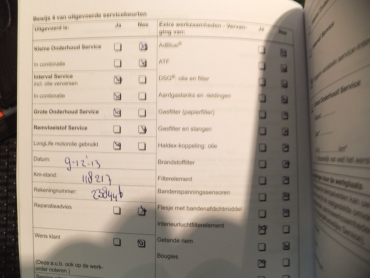 Bewijs 4 van uitgevoerde servicebeurten
Uitgevoerd is: Ja Nee
Kleine Onderhoud Service
In combinatie
Interval Service
incl. olie verversen
In combinatie
Grote Onderhoud Service
Remvloeistof Service
LongLife motorolie gebruikt
Datum: 9-12-'13
Km-stand: 118217
Rekeningnummer:
Reparatieadvies:
Wens klant
(Deze a.u.b. ook op de werk-
order noteren.)
Extra werkzaamheden - Vervan-
ging van: Ja Nee
AdBlue®
ATF
DSG®: olie en filter
Aardgastanks en -leidingen
Gasfilter (papierfilter)
Gasfilter en slangen
Haldex-koppeling: olie
Brandstoffilter
Filterelement
Bandenspanningssensoren
Flesje met bandenafdichtmiddel
Interieurluchtfilterelement
Getande riem
Bougies